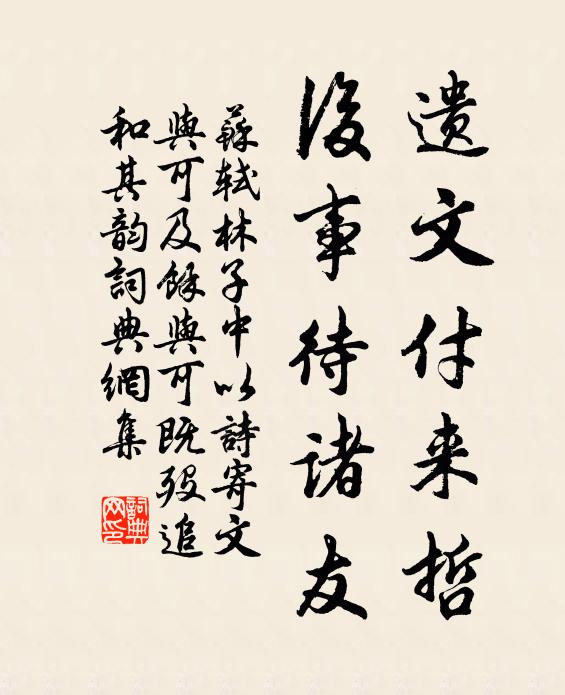 遺文付来哲
後事待诸友
蘇轼林子中以詩寄文
與可及餘與可既殁追
和其韵詞典網集
詞典網印